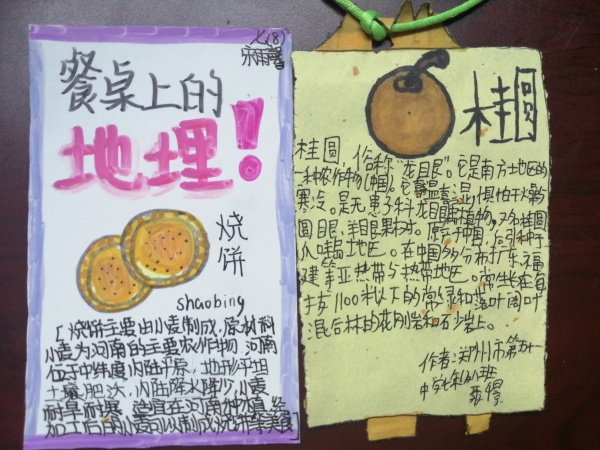 七(8)
餐桌上的
地理!
烧
饼
shaobing
[烧饼主要由小麦制成,原材料
小麦为河南的主要农作物,河南
位于中纬度内陆平原,地形平坦
土壤肥沃,内陆降水稀少,小麦
耐旱耐寒,适宜在河南种植,
加工后的小麦可以制成烧饼等美食]
桂圆
桂圆,俗称"龙目艮"。它是南方地区的
一种农作物(中国)。它喜温喜湿,惧怕干燥
寒冷。是无患子科龙目艮属植物,又名桂圆
圆眼、羊眼果树。原产于中国,后引种于
八口嗑地区。在中国多分布于广东、福
建等亚热带与热带地区。常生在海
拔1100米以下的常绿和落叶阔叶
混合林的花刚岩和石灰岩上。
作者:郑州市第五十一
中学七年级八班